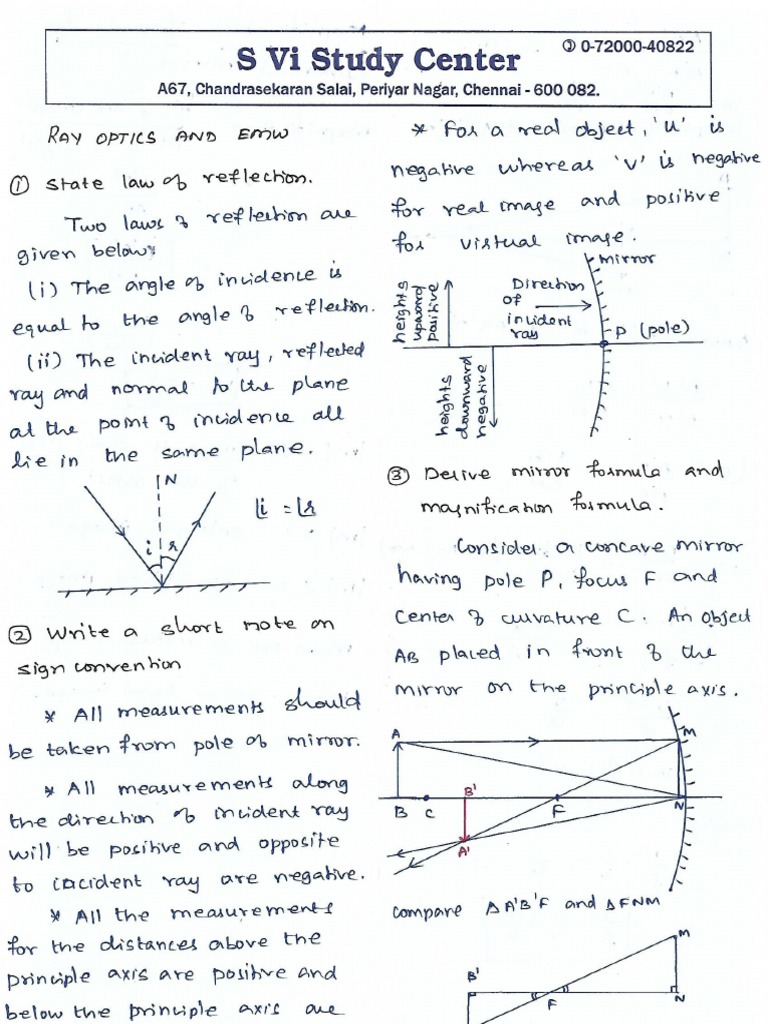 S Vi Study Center
✆ 0-72000-40822
A67, Chandrasekaran Salai, Periyar Nagar, Chennai - 600 082.
RAY OPTICS AND EMW
① State law of reflection.
Two laws of reflection are
given below:
(i) The angle of incidence is
equal to the angle of reflection.
(ii) The incident ray, reflected
ray and normal to the plane
at the point of incidence all
lie in the same plane.
N
i
r
∠i = ∠r
② Write a short note on
sign convention
* All measurements should
be taken from pole of mirror.
* All measurements along
the direction of incident ray
will be positive and opposite
to incident ray are negative.
* All the measurements
for the distances above the
principle axis are positive and
below the principle axis are
* For a real object, 'u' is
negative whereas 'v' is negative
for real image and positive
for virtual image.
mirror
heights
upward
positive
Direction
of
incident
ray
P (pole)
heights
downward
negative
③ Derive mirror formula and
magnification formula.
Consider a concave mirror
having pole P, focus F and
center of curvature C. An object
AB placed in front of the
mirror on the principle axis.
A
M
B
C
B'
F
N
A'
compare Δ A'B'F and Δ FNM
M
B'
F
N